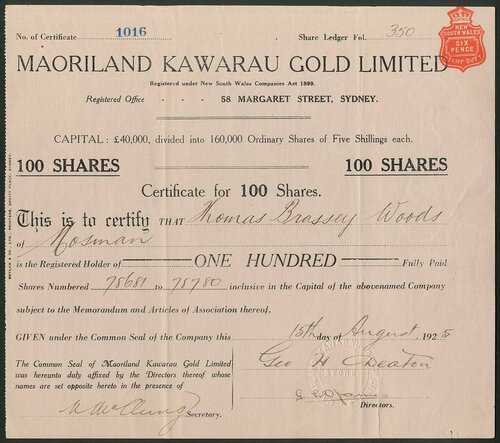 No. of Certificate 1016 Share Ledger Fol. 350
NEW SOUTH WALES SIX PENCE STAMP DUTY
MAORILAND KAWARAU GOLD LIMITED
Registered under New South Wales Companies Act 1899.
Registered Office - - - 58 MARGARET STREET, SYDNEY.
CAPITAL: £40,000, divided into 160,000 Ordinary Shares of Five Shillings each.
100 SHARES 100 SHARES
Certificate for 100 Shares.
This is to certify THAT Thomas Brassey Woods
of Mosman
is the Registered Holder of ONE HUNDRED Fully Paid
Shares Numbered 78681 to 78780 inclusive in the Capital of the abovenamed Company
subject to the Memorandum and Articles of Association thereof.
GIVEN under the Common Seal of the Company this 15th day of August, 1925
The Common Seal of Maoriland Kawarau Gold Limited
was hereunto duly affixed by the Directors thereof whose
names are set opposite hereto in the presence of
Geo H
Secretary.
Directors.